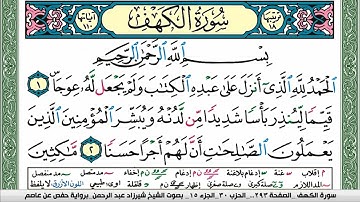 ترتيبها ١٨
سُورَةُ الْكَهْفِ
آياتها ١١٠
بِسْمِ اللَّهِ الرَّحْمَٰنِ الرَّحِيمِ
الْحَمْدُ لِلَّهِ الَّذِي أَنزَلَ عَلَىٰ عَبْدِهِ الْكِتَابَ وَلَمْ يَجْعَل لَّهُ عِوَجًا ١
قَيِّمًا لِّيُنذِرَ بَأْسًا شَدِيدًا مِّن لَّدُنْهُ وَيُبَشِّرَ الْمُؤْمِنِينَ الَّذِينَ
يَعْمَلُونَ الصَّالِحَاتِ أَنَّ لَهُمْ أَجْرًا حَسَنًا ٢ مَّاكِثِينَ
سورة الكهف . الصفحة ٢٩٣ . الجزء ١٥ . بصوت الشيخ شيرزاد عبد الرحمن . برواية حفص عن عاصم